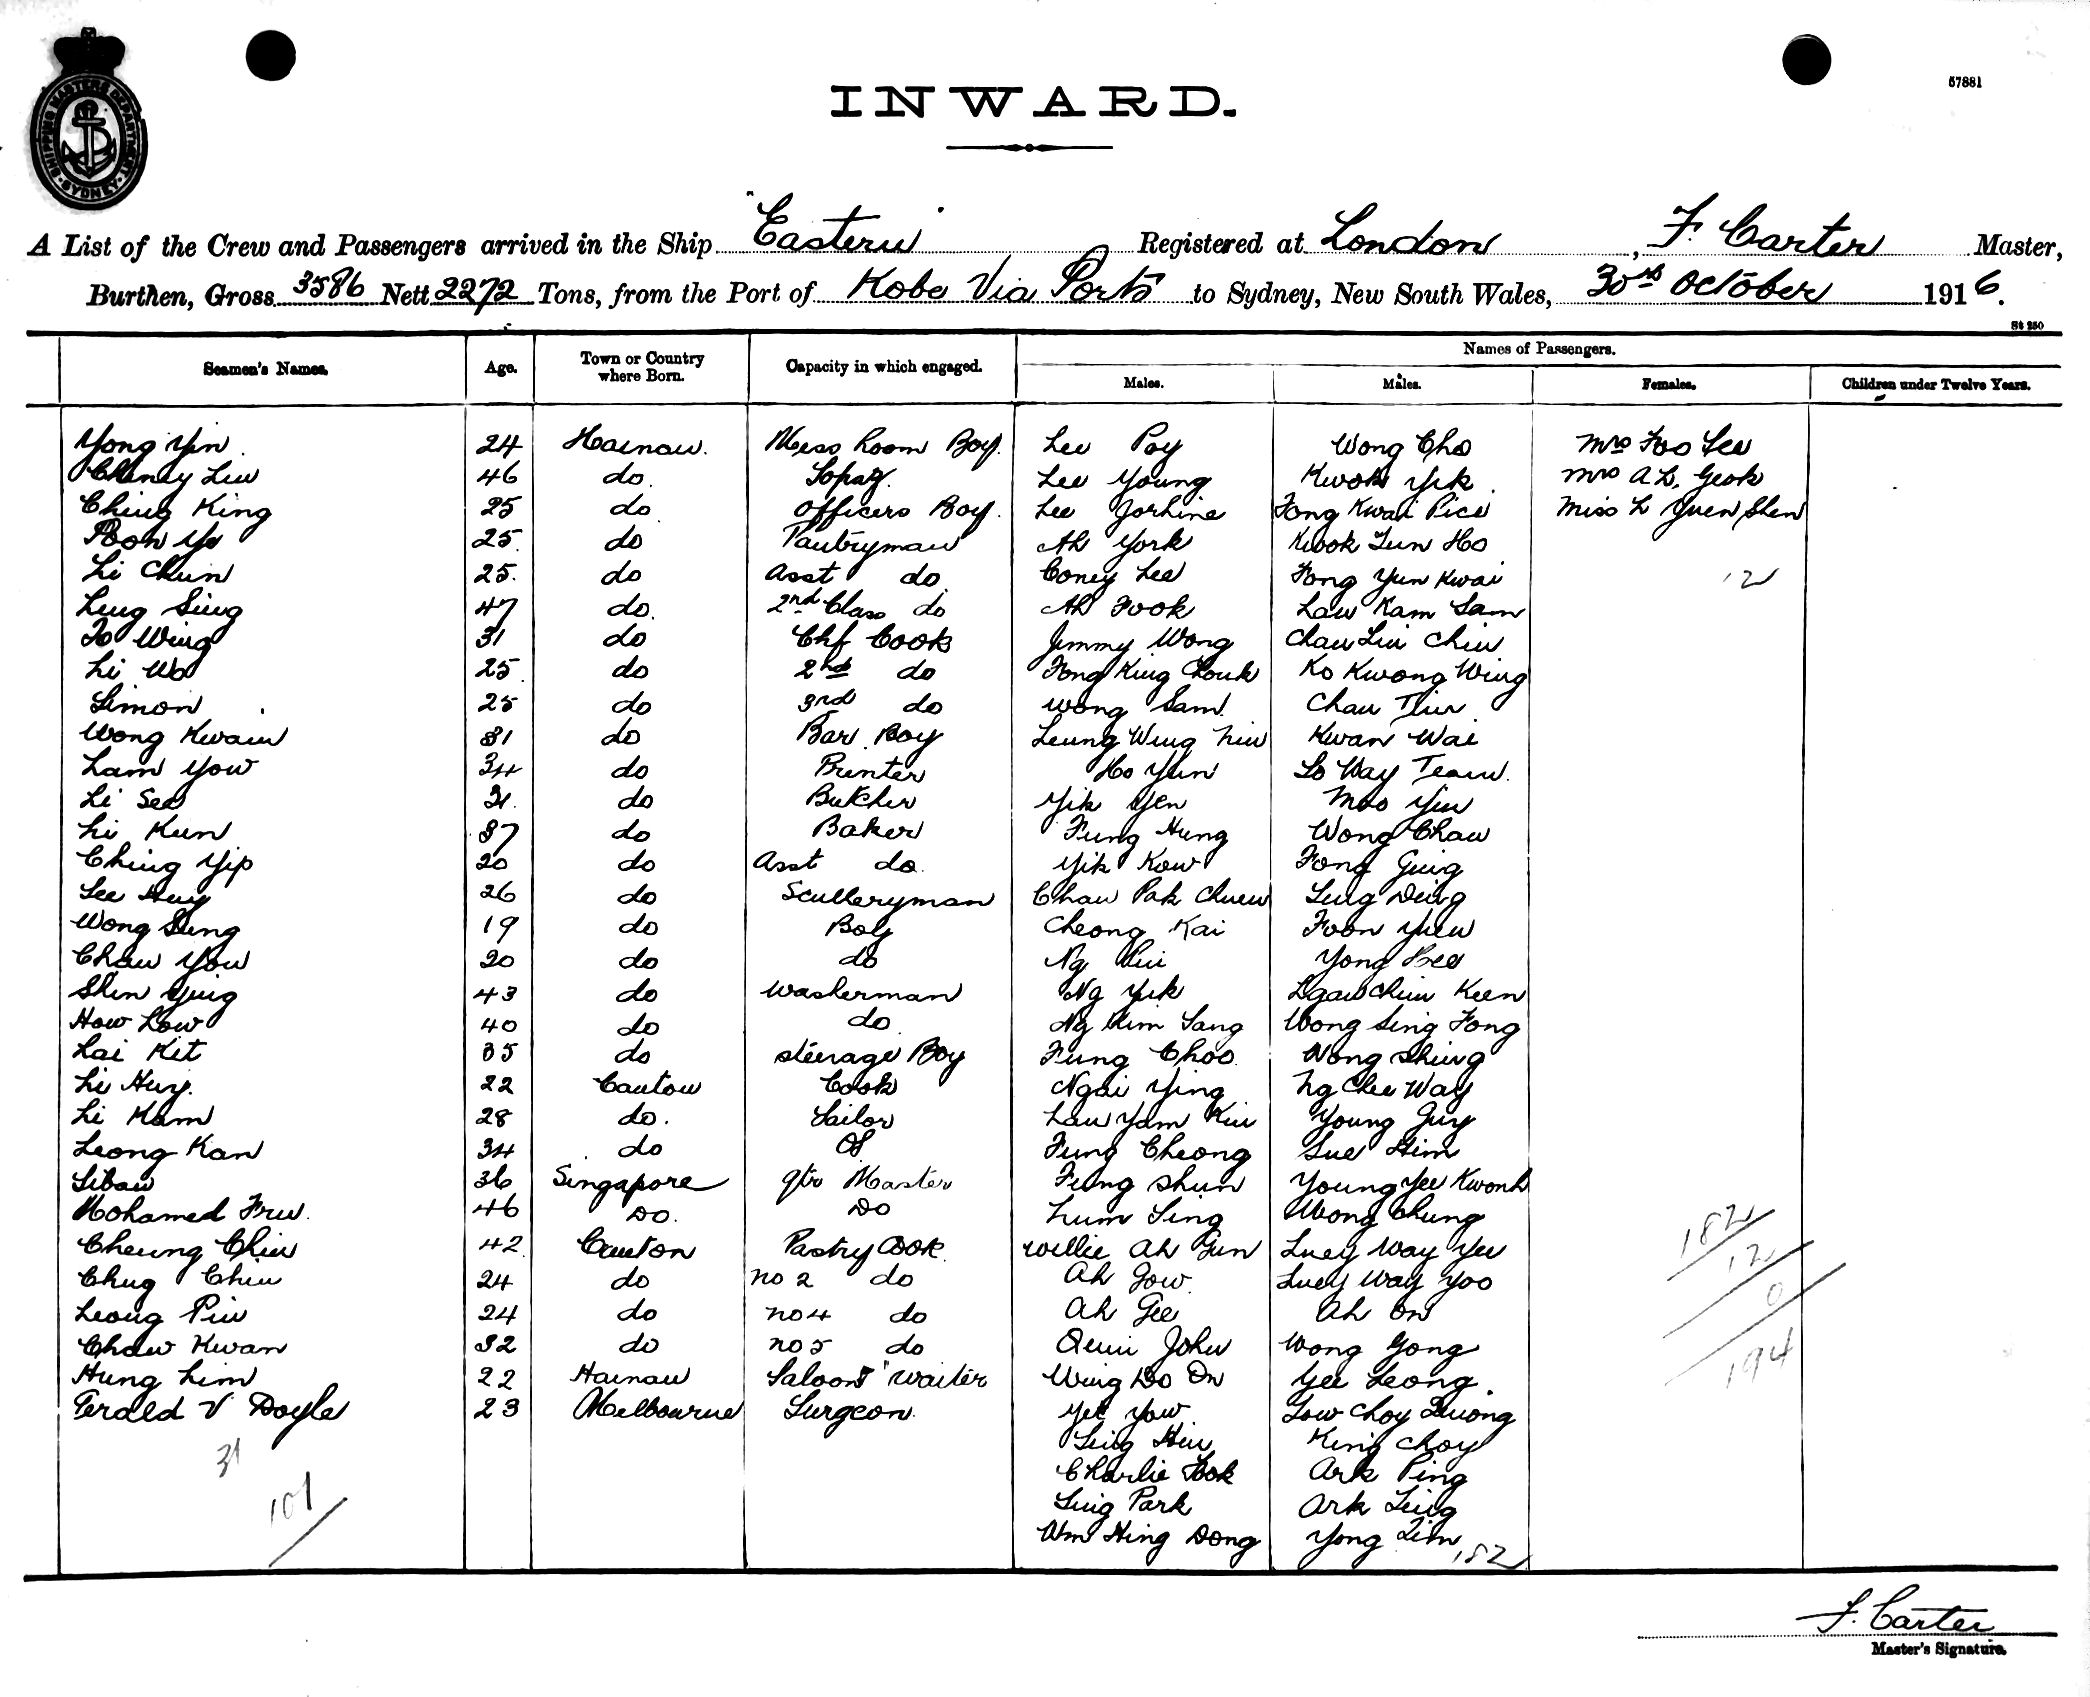 SHIPPING MASTERS DEPARTMENT
SYDNEY
57881
INWARD.
A List of the Crew and Passengers arrived in the Ship "Eastern" Registered at London, F. Carter Master,
Burthen, Gross 3586 Nett 2272 Tons, from the Port of Kobe Via Ports to Sydney, New South Wales, 30th October 1916.
St 250
Seamen's Names. Age. Town or Country where Born. Capacity in which engaged. Names of Passengers.
Males. Males. Females. Children under Twelve Years.
Yong Yin 24 Hainan. Mess Room Boy. Lee Poy Wong Cho Mrs Foo Lee
Cheney Liu 46 do. Lee Young Kwok Yik Mrs A L. Geok
Ching King 25 do Officers Boy. Lee Fong Kwai Miss L Yuen Shen
Poon Yo 25. do Pantryman Ah York Kwok Lun Ho
Li Chun 25. do Asst do Coney Lee Fong Yun Kwai 12
Leug Sing 47 do. 2nd Class do Ah Fook Lau Kam Sam
To Wing 31 do Chf Cook Jimmy Wong Chau Lin Chiu
Li Wo 25 do 2nd do Fong King Chouk Ko Kwong Wing
Simon 25 do 3rd do Wong Sam Chau
Wong Kwain 31 do Bar Boy Leung Wing Kwan Wai
Lam You 34 do Printer Ho Yun Lo Way
Li See 31. do Butcher Yik Yen Moo Yiu
Li Kun 37 do Baker Fung Hung Wong Chau
Ching Yip 20 do Asst do Yik Kow Fong Guig
Lee Huy 26 do Sculleryman Chau Pak Chuen Ding
Wong Sung 19 do Boy Cheong Kai Foon Yuen
Chau You 20 do do Ng Yong
Shin Ying 43 do Washerman Ng Yuk Keen
How Low 40 do do Ng Sang Wong Sing Fong
Lai Kit 35 do Steerage Boy Fung Choo Wong Shing
Li Huy. 22 Canton Cook Ngai Ying Ng Chee Way
Li Kam 28 do. Sailor Lau Yam Kiu Young Guy
Leong Kan 34 do OS Fung Cheong Sue Him
Sibau 36 Singapore Qtr Master Fung Shun Young Yee Kwonk
Mohamed 46 Do. Do Lum Sing Wong Chung
Cheung Chiu 42 Canton Pastry Cook Willie Ah Gun Luey Way Yee
Chug Chiu 24 do no 2 do Ah Gow Luey Way Yoo
Leong Piu 24 do no 4 do Ah Gee Ah On
Chau Kwan 32 do no 5 do John Wong Gong
Hung Lim 22 Hainan Saloon Waiter Wing Do On Yee Leong.
Gerald V Doyle 23 Melbourne Surgeon Yee You Low Choy Quong
King Choy
Charlie Fook Ark Ping
Park Ark Ling
Wm Hing Dong Yong Lim 182
31
101
182
12
0
194
F. Carter
Master's Signature.